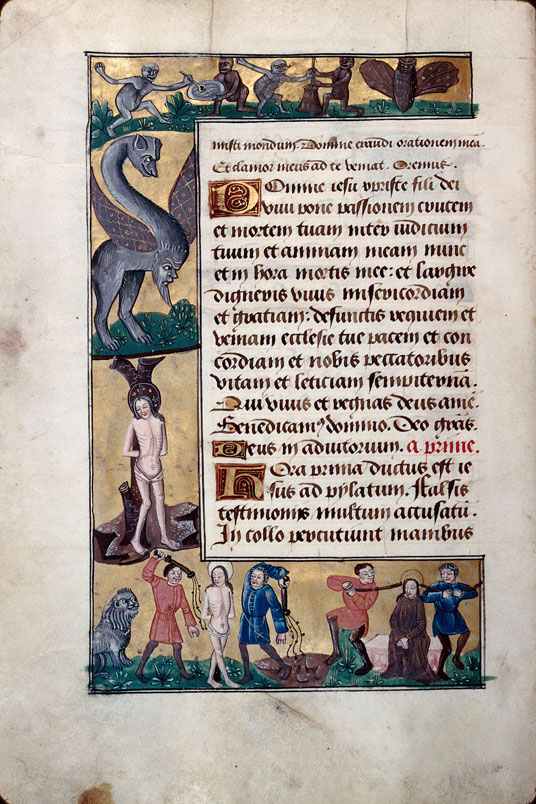 misti mondum. Domine exaudi orationem mea.
Et clamor meus ad te veniat. Oremus.
Domine iesu xpriste fili dei
vivi pone passionem crucem
et mortem tuam inter iudicium
tuum et animam meam nunc
et in hora mortis mee: et largire
digneris vivis misericordiam
et gratiam: defunctis requiem et
veniam ecclesie tue pacem et con
cordiam et nobis peccatoribus
vitam et leticiam sempiternā.
Qui vivis et regnas deus amē.
Benedicamꝰ domino. Deo grās.
Deus in adiutorium. A prime.
Hora prima ductus est ie
sus ad pylatum. Falsis
testimoniis multum accusatū.
In collo percutiunt manibus